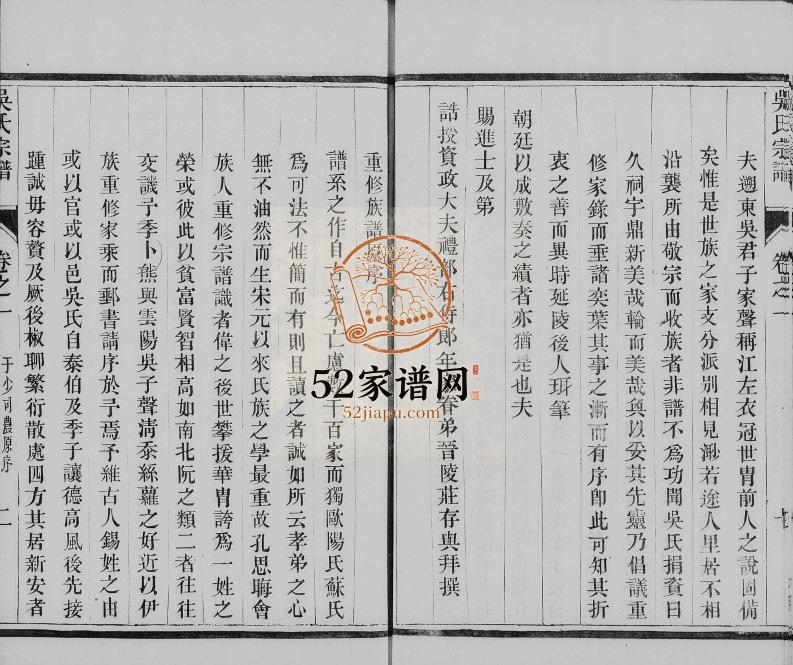 吳氏宗譜
夫遡東吳君子家聲稱江左衣冠世胄前人之說固備
矣惟是世族之家支分派別相見渺若途人里居不相
沿襲所由敬宗而收族者非譜不爲功聞吳氏捐資日
久祠宇鼎新美哉輪而美哉奐以妥其先靈乃倡議重
修家錄而垂諸奕葉其事之漸而有序卽此可知其折
衷之善而異時延陵後人珥筆
朝廷以成敷奏之績者亦猶是也夫
賜進士及第
誥授資政大夫禮部右侍郎年眷弟晉陵莊存與拜撰
重修族譜序
譜系之作自古迄今亡慮數千百家而獨歐陽氏蘇氏
爲可法不惟簡而有則且讀之者誠如所云孝弟之心
無不油然而生宋元以來氏族之學最重故孔思晦會
族人重修宗譜識者偉之後世攀援華胄誇爲一姓之
榮或彼此以貧富賢智相高如南北阮之類二者往往
交譏予季卜熊與雲陽吳子聲淸忝絲蘿之好近以伊
族重修家乘而郵書請序於予焉予維古人錫姓之由
或以官或以邑吳氏自泰伯及季子讓德高風後先接
踵誠毋容贅及厥後椒聊繁衍散處四方其居新安者
吳氏宗譜
卷之一
于少司農原序
二
52家谱网
52jiapu.com